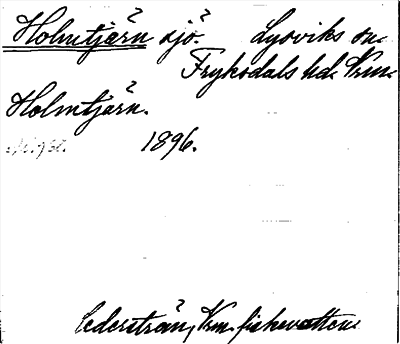 Holmtjärn sjö. Lysviks sn.
Fryksdals hd. Vrm.
Holmtjärn.
1896.
Cederström, Vrm. fiskevatten.